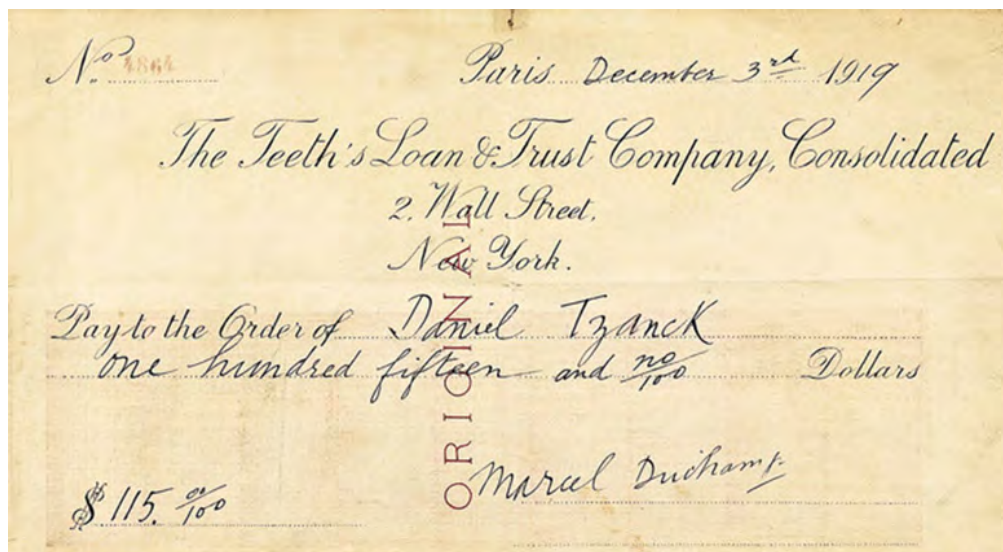 No. 4864
Paris December 3rd 1919
The Teeth's Loan & Trust Company, Consolidated
2. Wall Street.
New York.
Pay to the Order of Daniel Tzanck
one hundred fifteen and no/100 Dollars
ORIGINAL
Marcel Duchamp
$ 115. oo/100